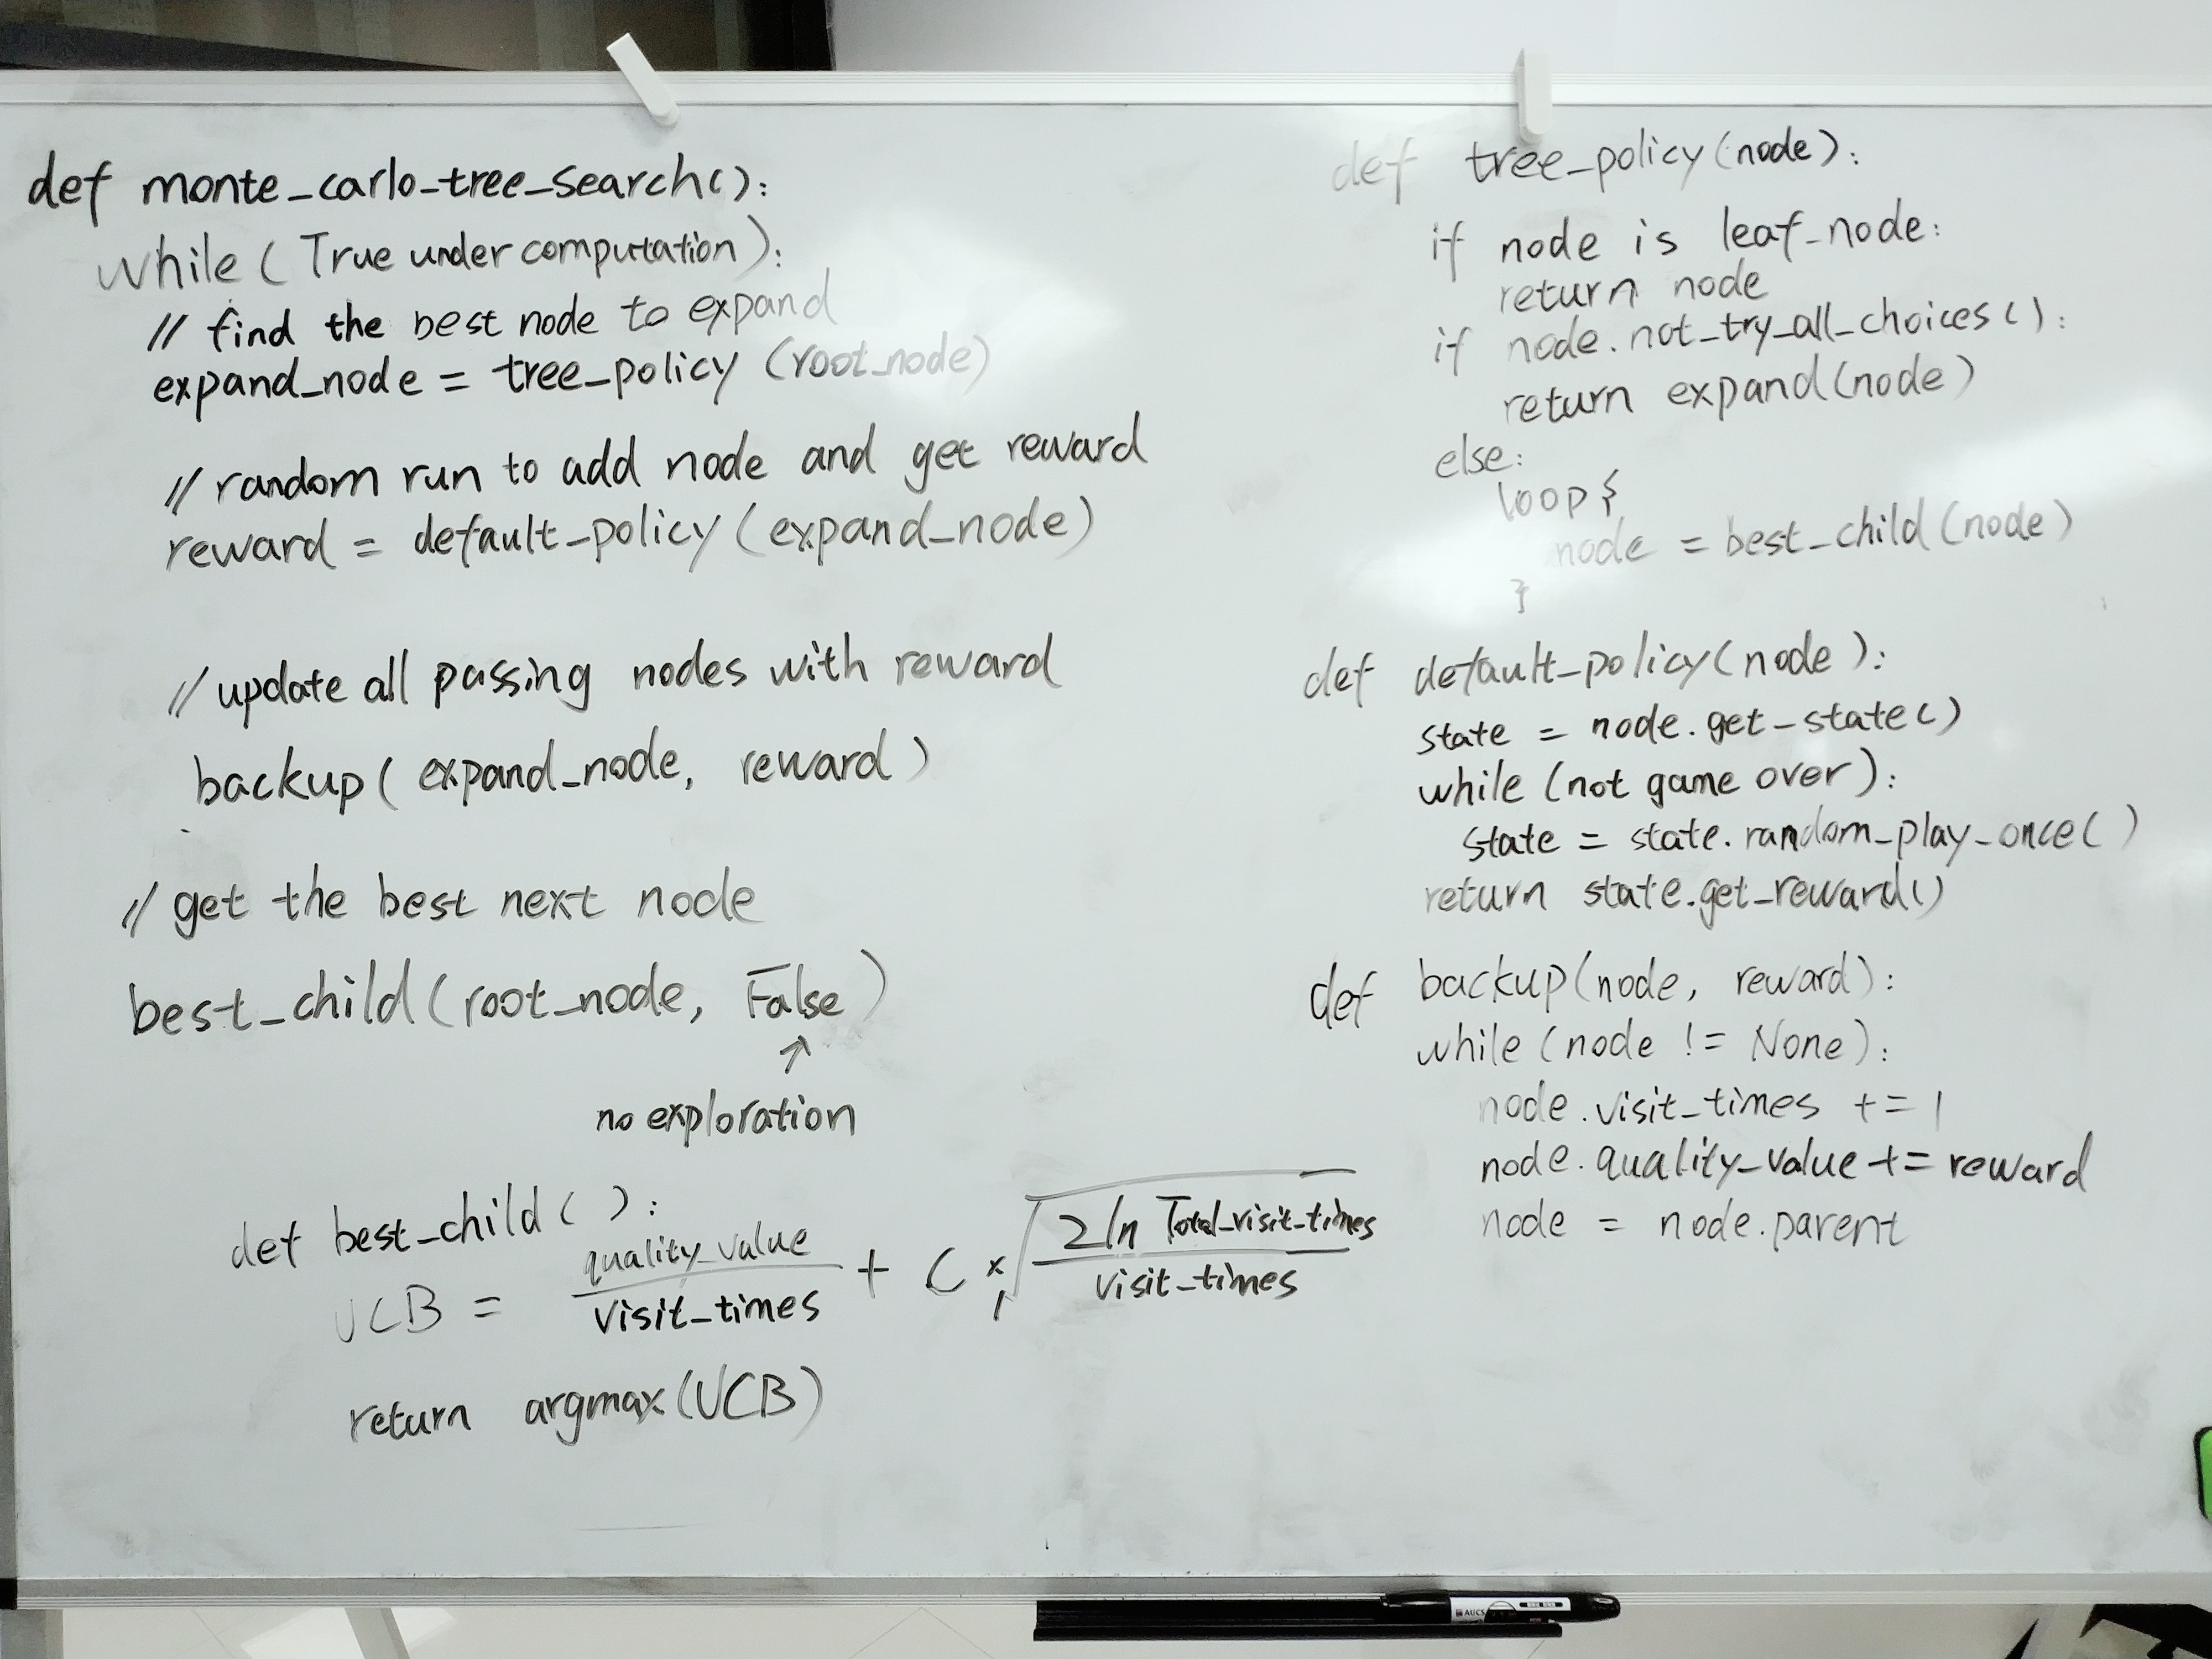 def monte_carlo-tree_search():
while (True under computation):
// find the best node to expand
expand_node = tree_policy (root_node)
// random run to add node and get reward
reward = default_policy (expand_node)
// update all passing nodes with reward
backup( expand_node, reward)
// get the best next node
best_child(root_node, False)
↑
no exploration
def best_child ( ):
UCB = quality_value / visit_times + C × √(2 ln Total_visit_times / visit_times)
return argmax(UCB)
def tree_policy(node):
if node is leaf_node:
return node
if node.not_try_all_choices():
return expand(node)
else:
loop{
node = best_child(node)
}
def default_policy(node):
state = node.get-state()
while (not game over):
state = state.random_play_once()
return state.get_reward()
def backup(node, reward):
while (node != None):
node.visit_times += 1
node.quality_value += reward
node = node.parent
AUCS